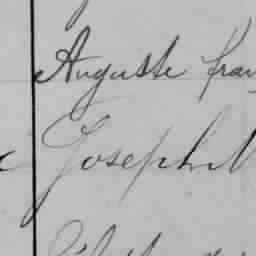 Auguste fran
Joseph N